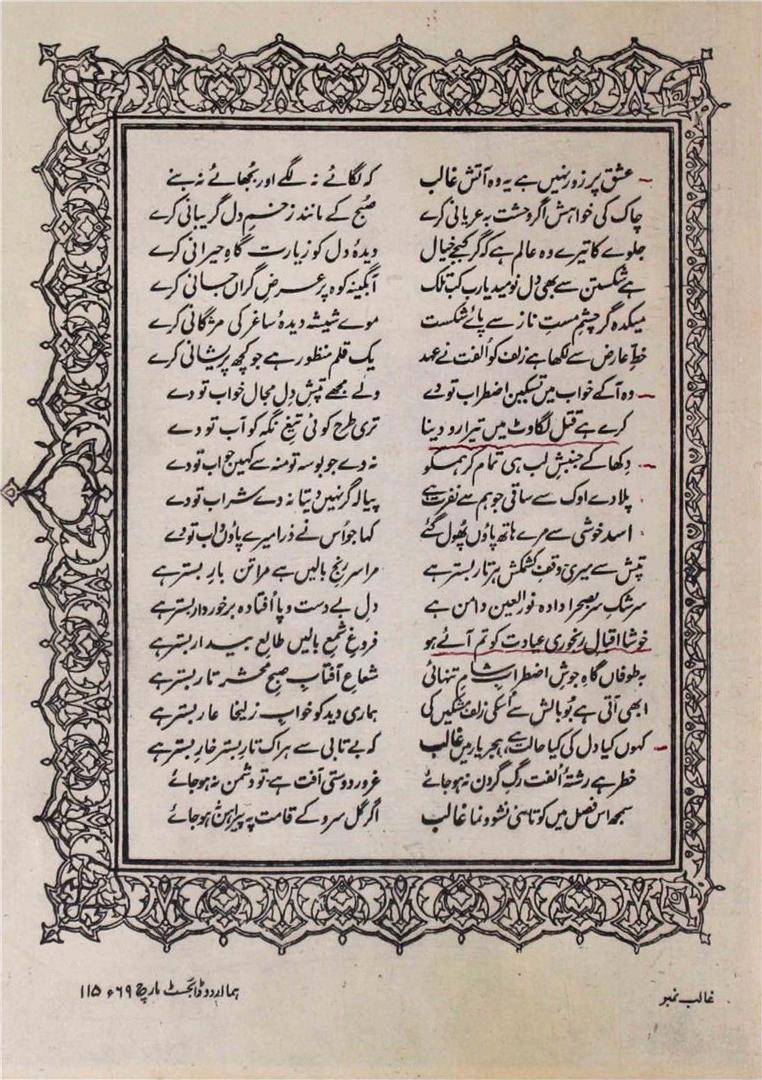 عشق پر زور نہیں ہے یہ وہ آتش غالب کہ لگائے نہ لگے اور بجھائے نہ بنے
چاک کی خواہش اگر وحشت بہ عریانی کرے صبح کے مانند زخمِ دل گریبانی کرے
جلوے کا تیرے وہ عالم ہے کہ گر کیجے خیال دیدۂ دل کو زیارت گاہِ حیرانی کرے
ہے شکستن سے بھی دل نومید یارب کب تلک آبگینہ کوہ پر عرضِ گراں جانی کرے
میکدہ گر چشمِ مستِ ناز سے پائے شکست موے شیشہ دیدۂ ساغر کی مژگانی کرے
خطِ عارض سے لکھا ہے زلف کو الفت نے عہد یک قلم منظور ہے جو کچھ پریشانی کرے
وہ آکے خواب میں تسکینِ اضطراب تو دے ولے مجھے تپشِ دل مجالِ خواب تو دے
کرے ہے قتل لگاوٹ میں تیرا رو دینا تری طرح کوئی تیغِ نگہ کو آب تو دے
دِکھا کے جنبشِ لب ہی تمام کر ہم کو نہ دے جو بوسہ تو منہ سے کہیں جواب تو دے
پلا دے اوک سے ساقی جو ہم سے نفرت ہے پیالہ گر نہیں دیتا نہ دے شراب تو دے
اسد خوشی سے مرے ہاتھ پاؤں پھول گئے کہا جو اُس نے ذرا میرے پاؤں داب تو دے
تپش سے میری وقفِ کشمکش ہر تارِ بستر ہے مرا سر رنجِ بالیں ہے مرا تن بارِ بستر ہے
سرشکِ سر بصحرا دادہ نور العین دامن ہے دلِ بے دست و پا اُفتادہ برخوردارِ بستر ہے
خوشا اقبالِ رنجوری عیادت کو تم آئے ہو فروغِ شمعِ بالیں طالعِ بیدارِ بستر ہے
بہ طوفاں گاہِ جوشِ اضطرابِ شامِ تنہائی شعاعِ آفتابِ صبحِ محشر تارِ بستر ہے
ابھی آتی ہے بُو بالش سے اُسکی زلفِ مشکیں کی ہماری دید کو خوابِ زلیخا عارِ بستر ہے
کہوں کیا دل کی کیا حالت ہے ہجرِ یار میں غالب کہ بے تابی سے ہر اک تارِ بستر خارِ بستر ہے
خطر ہے رشتۂ اُلفت رگِ گردن نہ ہوجائے غرورِ دوستی آفت ہے تو دشمن نہ ہوجائے
سمجھ اس فصل میں کوتاہئی نشوونما غالب اگر گل سرو کے قامت پہ پیراہن نہ ہوجائے
غالب نمبر ہما اردو ڈائجسٹ مارچ ۶۹ء ۱۱۵